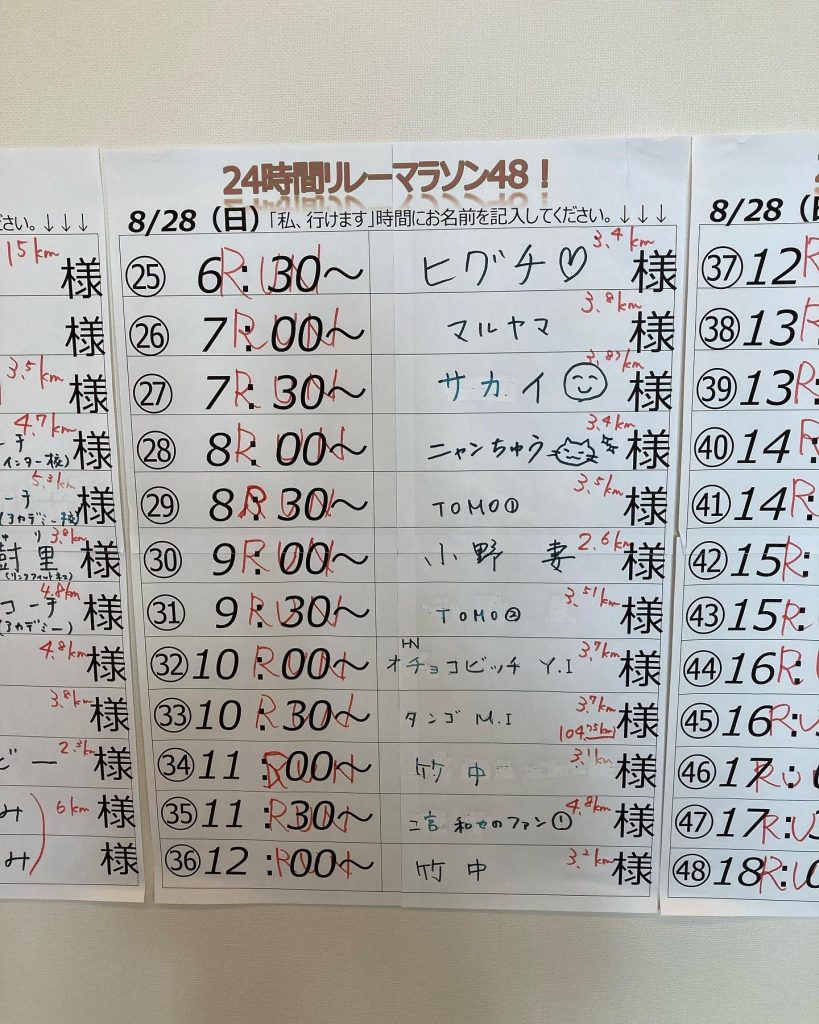 24時間リレーマラソン48！
ださい。↓↓↓
8/28（日）「私、行けます」時間にお名前を記入してください。↓↓↓
8/28（日
15km 様
様
3.5km 様
4.7km 様
5.3km 様
樹里 3.8km 様
コーチ 4.8km 様
（アカデミー）
4.8km 様
3.8km 様
ビー 様
み 6km 様
み 様
㉕ 6:30～ RUN ヒグチ♡ 3.4km 様
㉖ 7:00～ RUN マルヤマ 3.8km 様
㉗ 7:30～ RUN サカイ 様
㉘ 8:00～ RUN ニャンちゅう 3.4km 様
㉙ 8:30～ RUN TOMO① 3.5km 様
㉚ 9:00～ RUN 小野 妻 2.6km 様
㉛ 9:30～ RUN TOMO② 3.51km 様
㉜ 10:00～ RUN HN オチョコビッチ Y.I 3.7km 様
㉝ 10:30～ RUN タンゴ M.I 3.7km 様
㉞ 11:00～ RUN 竹中 3.11km 様
㉟ 11:30～ RUN 二宮 和也のファン① 4.8km 様
㊱ 12:00～ RUN 竹中 3.2km 様
㊲ 12 R
㊳ 13 R
㊴ 13 R:
㊵ 14 R
㊶ 14 R:
㊷ 15 R:
㊸ 15 R:
㊹ 16 R:
㊺ 16 R:
㊻ 17 RU
㊼ 17 R:U
㊽ 18 R:U